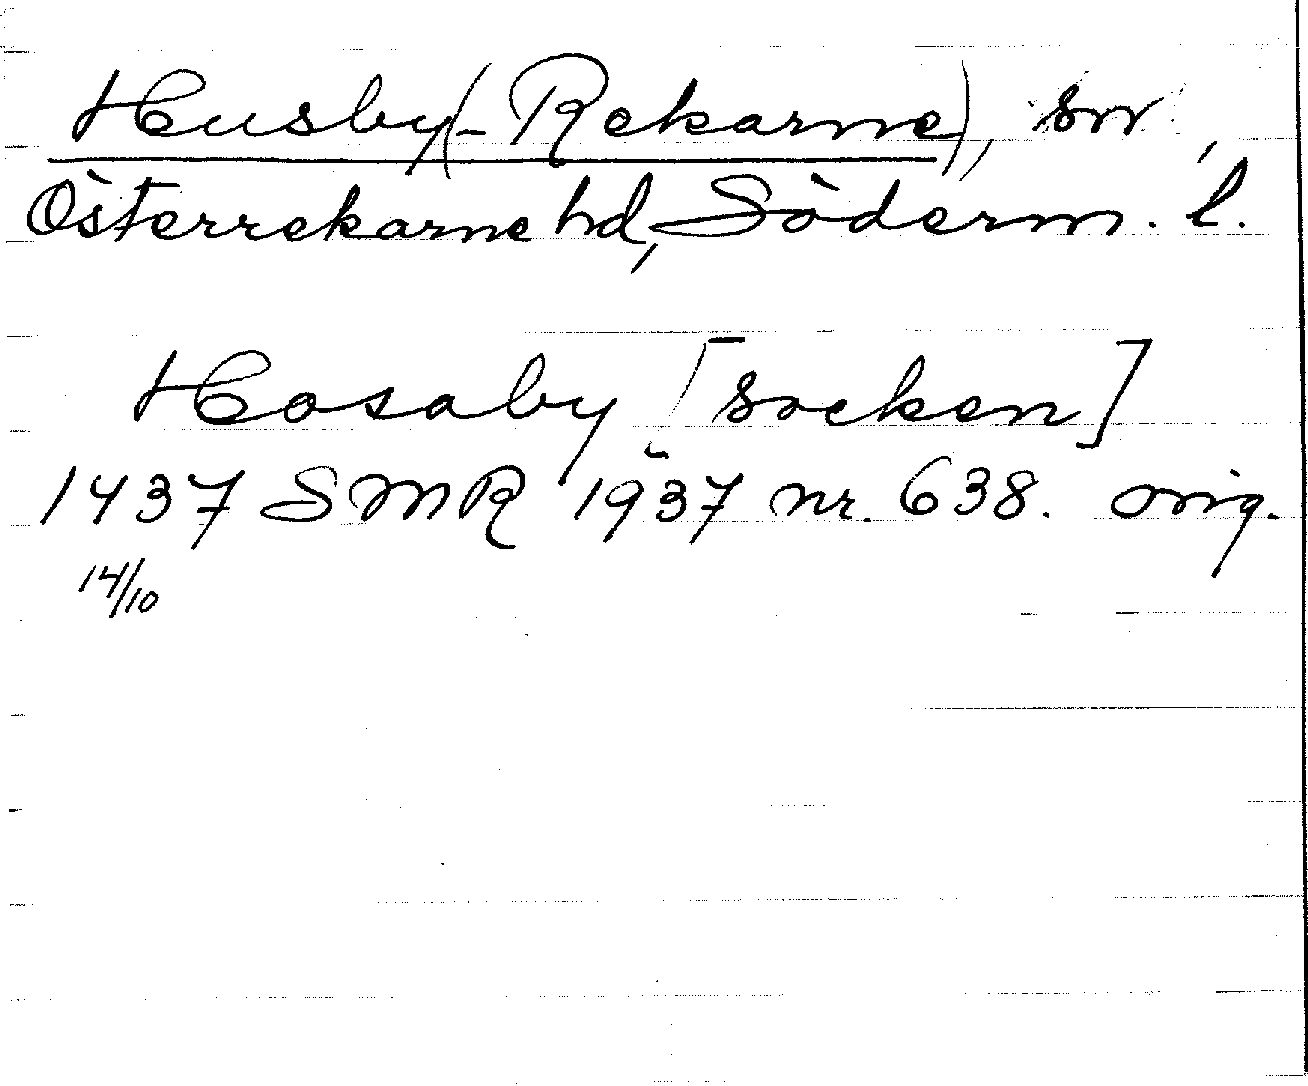 Husby(-Rekarne), sn,
Österrekarne hd, Söderm. l.
Hosaby [socken]
1437 SMR 1937 nr. 638. orig.
14/10